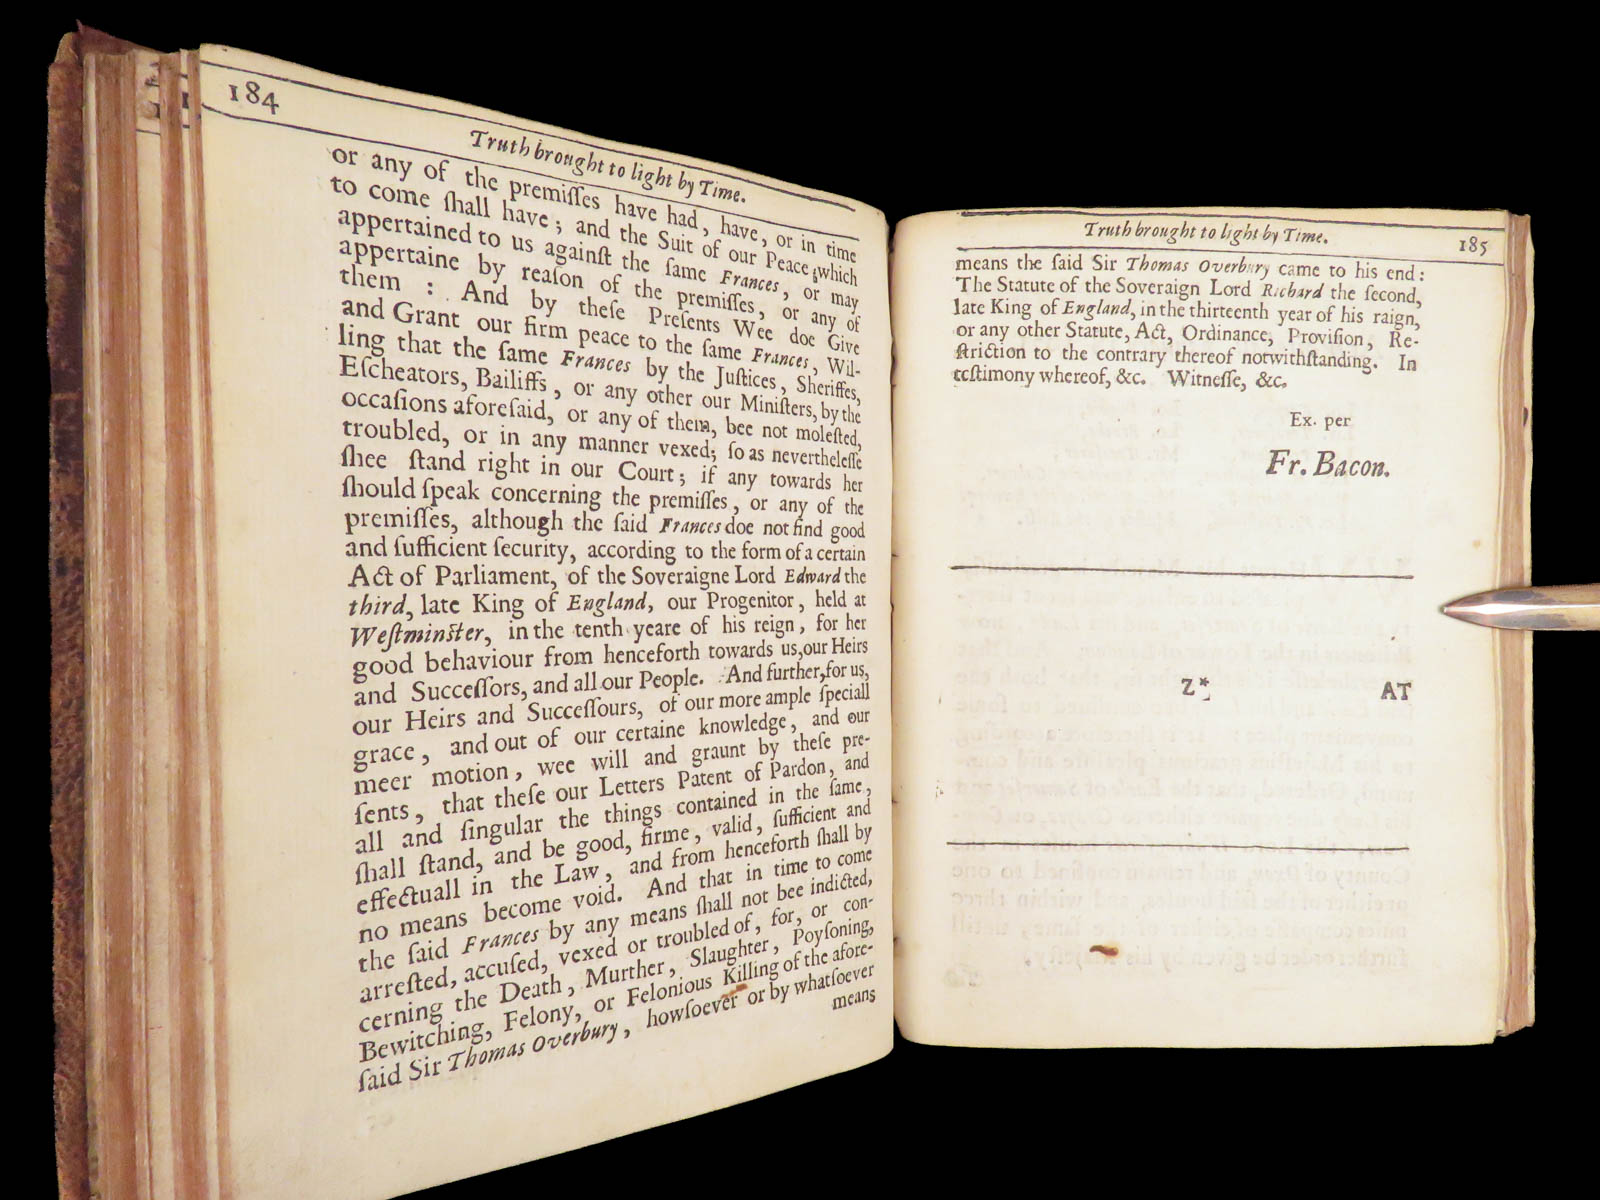 184
Truth brought to light by Time.
or any of the premiſſes have had, have, or in time
to come ſhall have; and the Suit of our Peace, which
appertained to us againſt the ſame Frances, or may
appertaine by reaſon of the premiſſes, or any of
them : And by theſe Preſents Wee doe Give
and Grant our firm peace to the ſame Frances, Wil-
ling that the ſame Frances by the Juſtices, Sheriffes,
Eſcheators, Bailiffs, or any other our Miniſters, by the
occaſions aforeſaid, or any of them, bee not moleſted,
troubled, or in any manner vexed; ſo as nevertheleſſe
ſhee ſtand right in our Court; if any towards her
ſhould ſpeak concerning the premiſſes, or any of the
premiſſes, although the ſaid Frances doe not find good
and ſufficient ſecurity, according to the form of a certain
Act of Parliament, of the Soveraigne Lord Edward the
third, late King of England, our Progenitor, held at
Weſtminſter, in the tenth yeare of his reign, for her
good behaviour from henceforth towards us, our Heirs
and Succeſſors, and all our People. And further, for us,
our Heirs and Succeſſours, of our more ample ſpeciall
grace, and out of our certaine knowledge, and our
meer motion, wee will and graunt by theſe pre-
ſents, that theſe our Letters Patent of Pardon, and
all and ſingular the things contained in the ſame,
ſhall ſtand, and be good, firme, valid, ſufficient and
effectuall in the Law, and from henceforth ſhall by
no means become void. And that in time to come
the ſaid Frances by any means ſhall not bee indicted,
arreſted, accuſed, vexed or troubled of, for, or con-
cerning the Death, Murther, Slaughter, Poyſoning,
Bewitching, Felony, or Felonious Killing of the afore-
ſaid Sir Thomas Overbury, howſoever or by whatſoever
means
Truth brought to light by Time.
185
means the ſaid Sir Thomas Overbury came to his end:
The Statute of the Soveraign Lord Richard the ſecond,
late King of England, in the thirteenth year of his raign,
or any other Statute, Act, Ordinance, Proviſion, Re-
ſtriction to the contrary thereof notwithſtanding. In
teſtimony whereof, &c. Witneſſe, &c.
Ex. per
Fr. Bacon.
Z*
AT